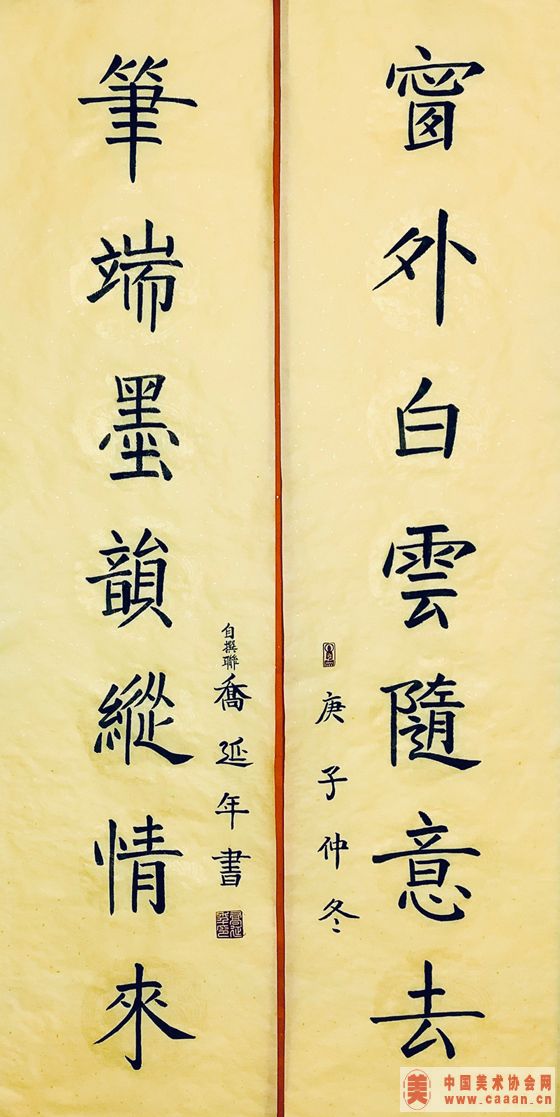 窗外白雲隨意去
庚子仲冬
筆端墨韻縱情來
自撰聯
喬延年書
美
中国美术协会网
www.caaan.cn